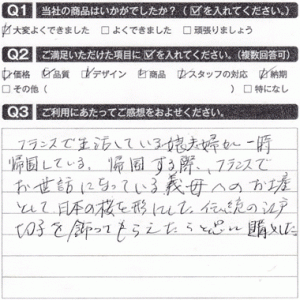 Q1 当社の商品はいかがでしたか？（☑を入れてください。）
☑大変よくできました □よくできました □頑張りましょう
Q2 ご満足いただけた項目に☑を入れてください。（複数回答可）
☑価格 ☑品質 ☑デザイン ☑商品 ☑スタッフの対応 ☑納期
□その他（ ） □特になし
Q3 ご利用にあたってご感想をおよせください。
フランスで生活している娘夫婦が一時
帰国している。帰国する際、フランスで
お世話になっている義母へのお土産
として日本の桜を形にした、伝統の江戸
切子を飾ってもらえたらと思い購入した